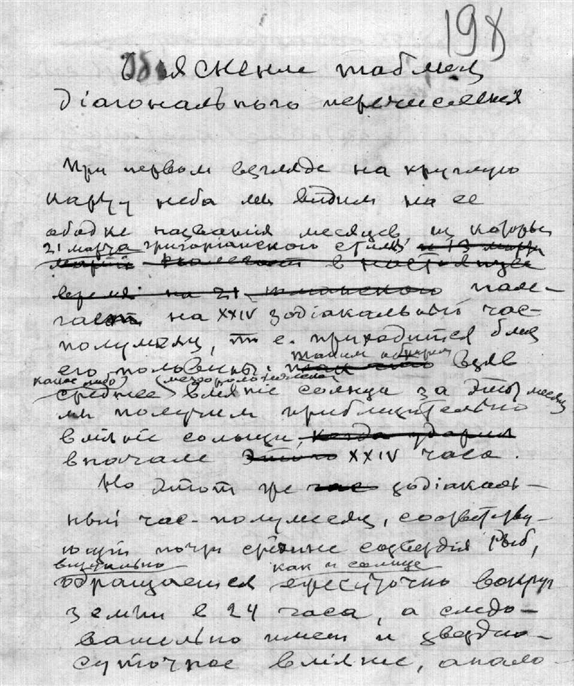 198
Объяснение таблиц
діагонального перечисления
При первом взгляде на круглую
карту неба мы видим на ее
ободке названія месяцев, из которых
21 марта григоріанского стиля
в настоящее
время на 21
на XXIV зодіакальный час-
полумесяц, т. е. приходится близ
его половины. таким образом взяв
какое либо (метеорологическое)
среднее вліяніе солнца за этот месяц
мы получим приблизительно
вліяніе солнца когда
вначале этого XXIV часа.
Но этот же час зодіакаль-
ный час-полумесяц, соответству-
ющій почти средине созвездія Рыб,
визуально как и солнце
обращается ежесуточно вокруг
земли в 24 часа, а следо-
вательно имеет и звездно-
суточное вліяніе, анало-